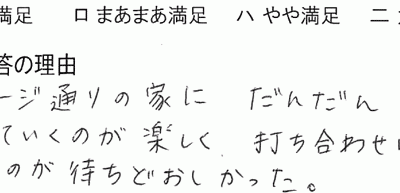 満足 ロ まあまあ満足 ハ やや満足 ニ
答の理由
ージ通りの家に だんだん
ていくのが楽しく 打ち合わせ
のが待ちどおしかった。